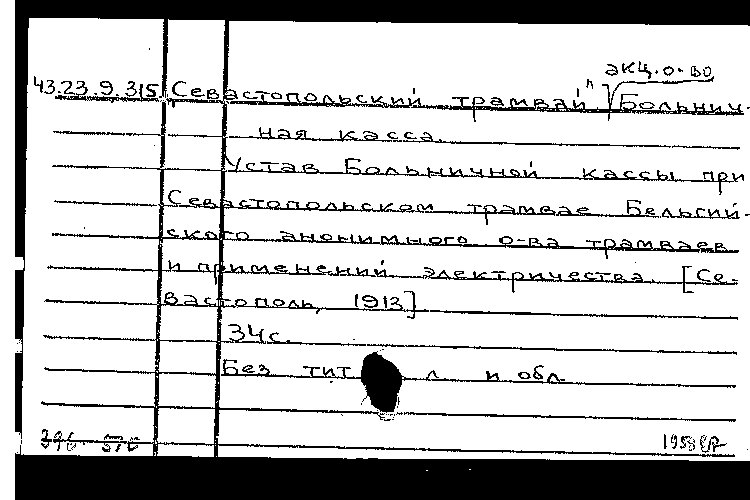 акц. о-во
43.23.9.315. Севастопольский трамвай". Больнич-
ная касса.
Устав Больничной кассы при
Севастопольском трамвае Бельгий-
ского анонимного о-ва трамваев
и применений электричества. [Се-
вастополь, 1913]
34с.
Без тит л и обл.